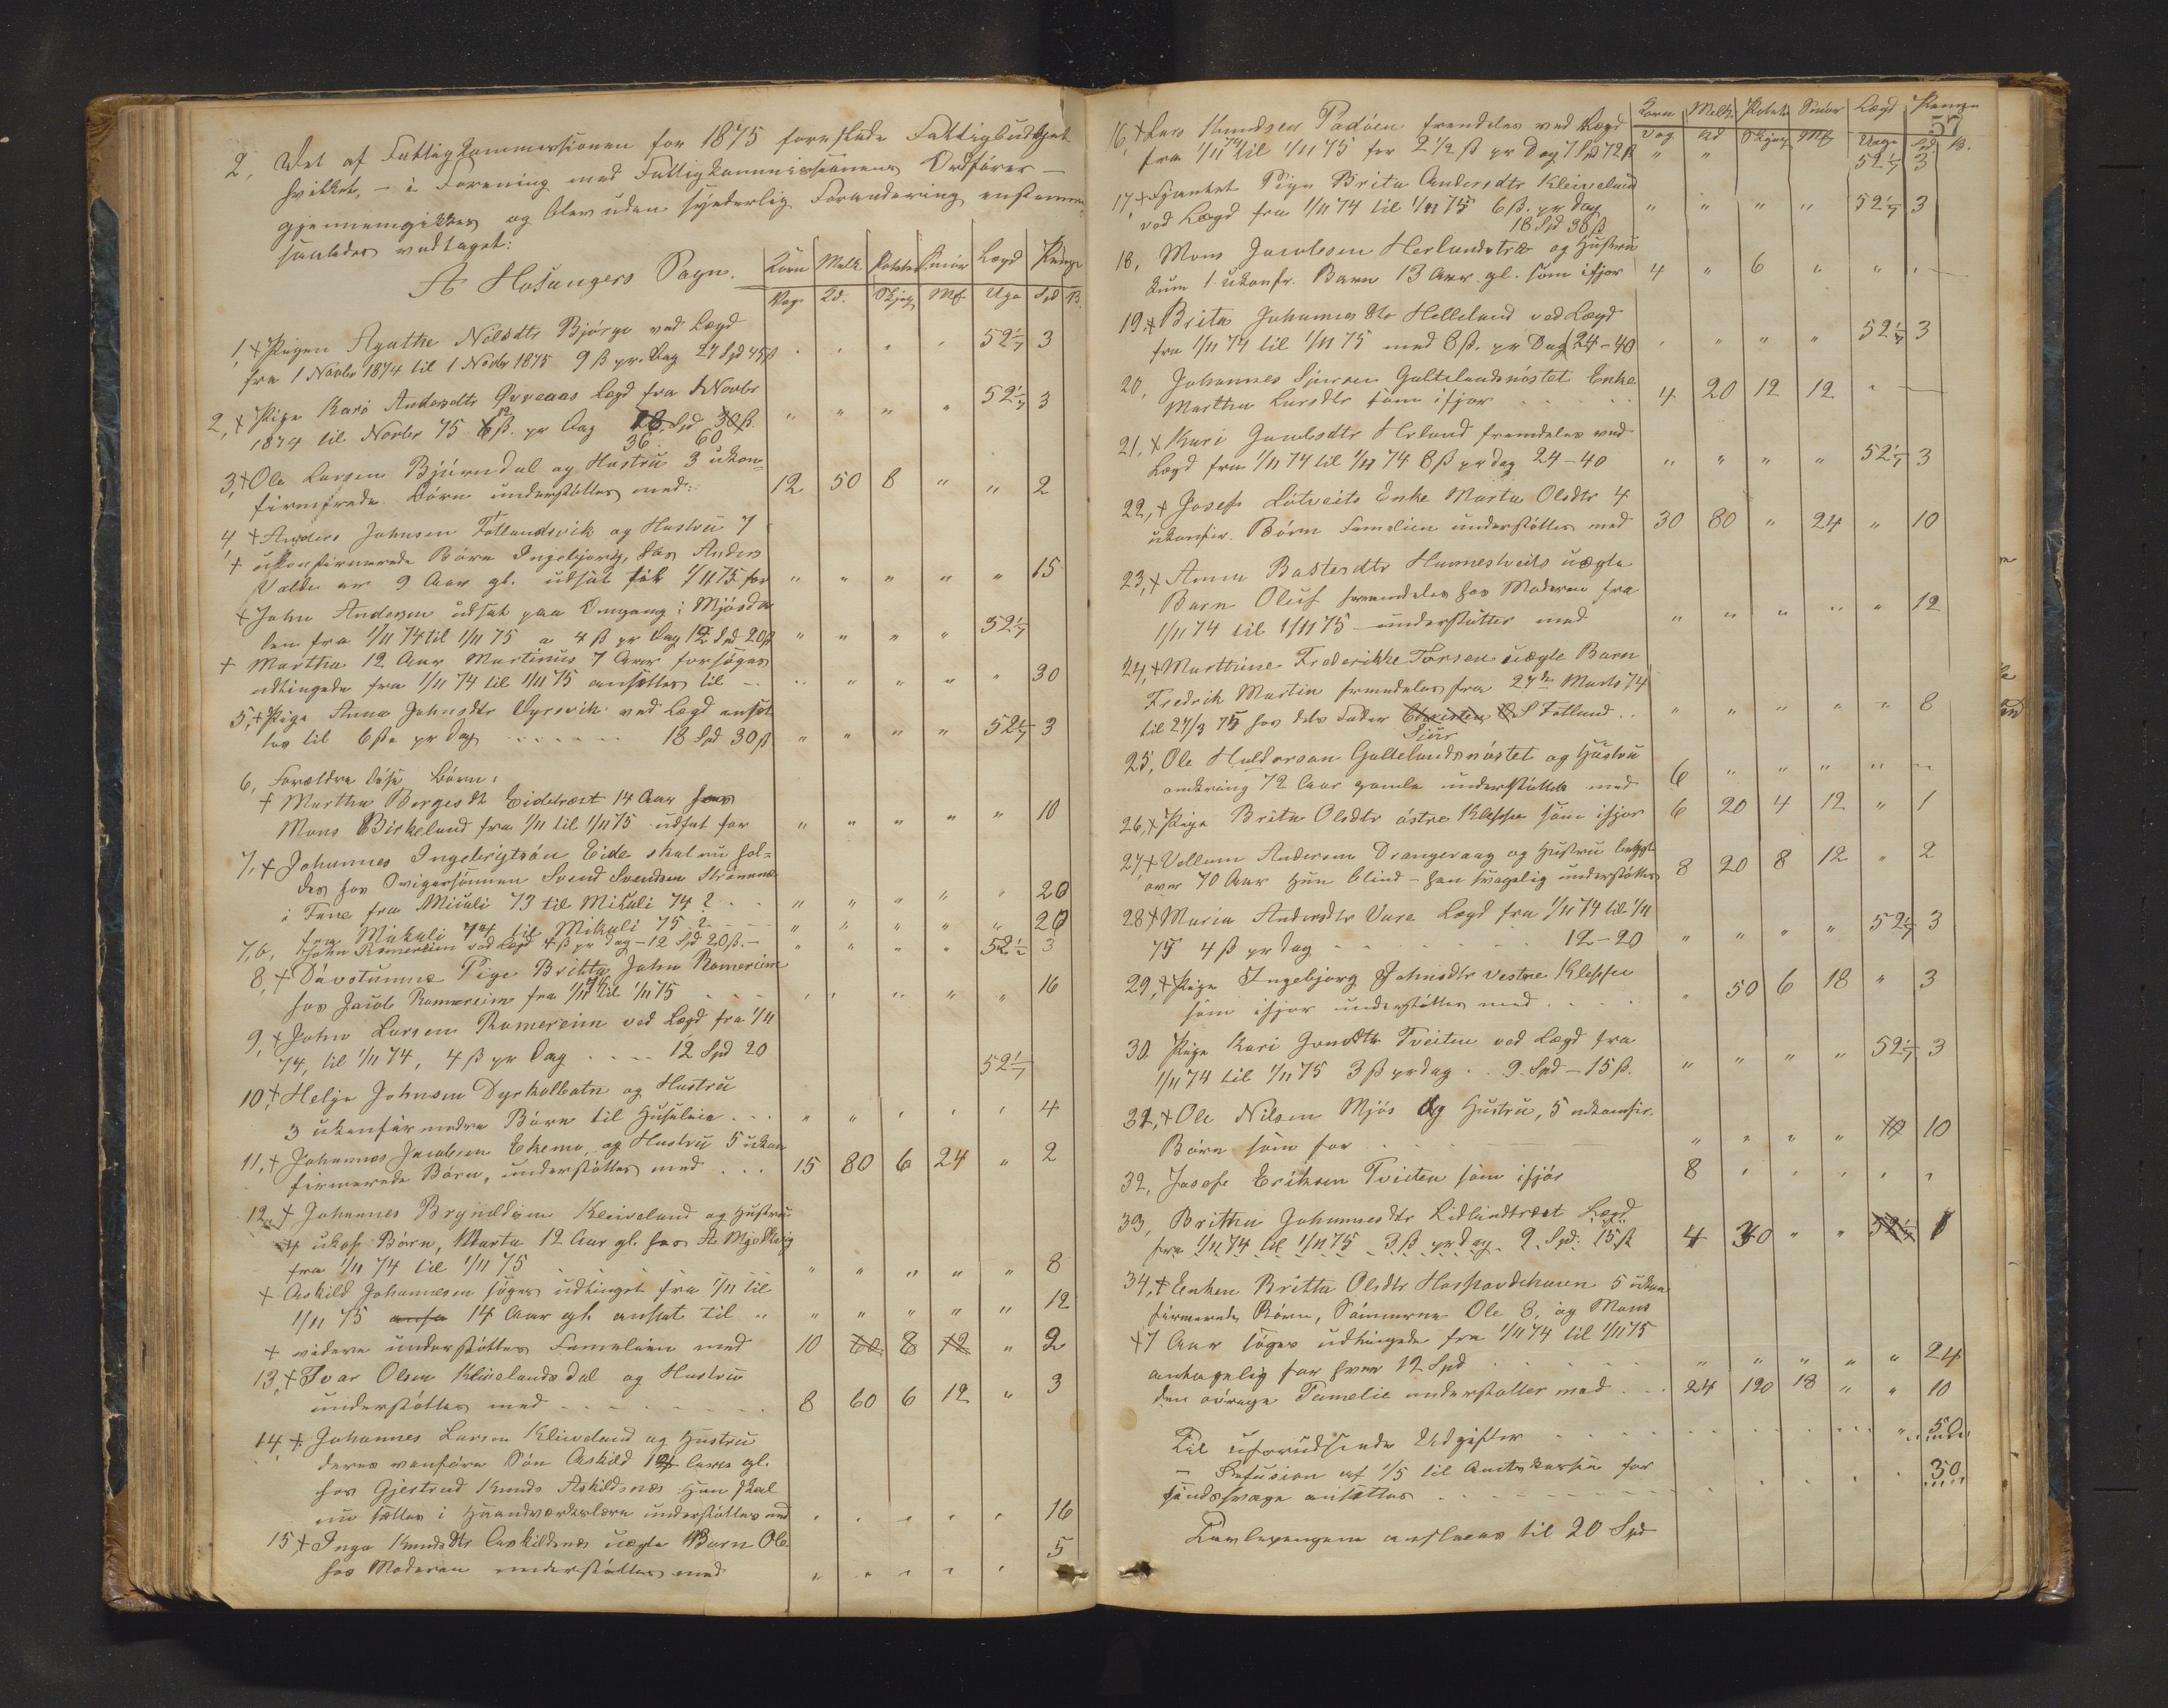 2, Det af Fattigkommissionen for 1875 foreslåede Fattigbudget
hvilket, – i Forening med Fattigkommissionens Ordfører –
gjennemgikkes og blev uden synderlig Forandering enstemmig
saaledes vedtaget:
A Hosangers Sogn.
Korn Melk Poteter Smør Lægd Penge
Vog Skjep Mk Uge Spd ß.
1, + Pigen Agathe Nilsdtr Bjørge ved Lægd
fra 1 Novbr 1874 til 1 Novbr 1875 9 ß pr. Dag 27 Spd 45 ß " " " " 52 1/7 3
2, + Pige Kari Andersdtr Lægd fra 1 Novbr
1874 til Novbr 75 ß. pr Dag Spd 30 ß. " " " " 52 1/7 3
36 60
3, + Ole Larsen Bjørndal og Hustru 3 ukon=
firmerede Børn understøttes med 12 50 8 " " 2
4 + Anders Johnsen Fotlandsvik og Hustru 7
+ ukonfirmerede Børn Ingebjørg, hos Anders
Valde er 9 Aar gl. udsat til 1/11 75 for " " " " " 15
+ John Andersen udsat paa Omgang i Mjøsda
len fra 1/11 74 til 1/11 75 a 4 ß pr Dag 12 Spd 20 ß " " " " 52 1/7
+ Martha 12 Aar Martinus 7 Aar forsøges
udtingede fra 1/11 74 til 1/11 75 ansættes til – " " " " " 30
5, + Pige Anna Johnsdtr Dyrsvik ved Lægd ansæt
tes til 6 ß pr Dag . . . . . 18 Spd 30 ß " " " " 52 1/7 3
6, Forældre løse Børn:
+ Martha Borgesdtr Eidetræet 14 Aar hos
Mons Birkeland fra 1/11 til 1/11 75 udsat for " " " " " 10
7, + Johannes Ingebrigtsøn Eide skal nu hol=
des hos Svend Svendsen
i Fane fra Mikali 73 til Mikali 74 2 . . " " " " " 20
fra Mikali 74 til Mikali 75 2 . . " " " " " 20
7, b, John Romereim ved Lægd 4 ß pr Dag – 12 Spd 20 ß. – " " " " 52 1/7 3
8, + Døvstumme Pige Britta John Romereim
hos Jacob Romereim fra 1/11 74 til 1/11 75 . . " " " " " 16
9, + John Larsen Romereim ved Lægd fra 1/11
74, til 1/11 74, 4 ß pr Dag . . . . 12 Spd 20 52 1/7
10, + Helge Johnsen Dyrkolbotn og Hustru
3 ukonfirmedre Børn til Husleie . . . " " " " " 4
11, + Johannes Jacobsen Ekemo, og Hustru 5 ukon
firmerede Børn, understøttes med . . . 15 80 6 24 " 2
12, + Johannes Brynildsen Kleiveland og Hustru
4 ukof. Børn, Marta 12 Aar gl. hos A
fra 1/11 74 til 1/11 75 . . . " " " " " 8
+ Askild Johannesen søges udtinget fra 1/11 til
1/11 75 ansa 14 Aar gl. ansat til .. " " " " " 12
+ videre understøttes Familien med 10 60 8 12 " 2
13, + Ivar Olsen Kleivelandsdal og Hustru
understøttes med . . . . . . . . 8 60 6 12 " 3
14 + Johannes Larsen Kleiveland og Hustru
deres vanføre Søn Askild Aar gl.
hos Gjertrud Knuds Askildsnes Han skal
nu sættes i Haandværkslære understøttes med " " " " " 16
15, + Inga Knudsdtr Askildsnes uægte Barn Ole
hos Moderen understøttes med " " " " " 5
57
Korn Melk Potet Smør Lægd Penge
Vog Skjep Mk Uge Spd ß.
16, + Lars Knudsen Padøen fremdeles ved Lægd
fra 1/11 74 til 1/11 75 for 2 1/2 ß pr Dag 7 Spd 72 ß " " 52 1/7 3
17, + Fjantet Pige Brita Andersdtr Kleiveland
ved Lægd fra 1/11 74 til 1/11 75 6 ß. pr Dag " " " " 52 1/7 3
18 Spd 30 ß
18, Mons Jacobsen Herlandstræ og Hustru
kun 1 ukonfr. Barn 13 Aar. gl. som ifjor 4 " 6 " " "
19, + Brita Johannesdtr Helleland ved Lægd
fra 1/11 74 til 1/11 75 med 8 ß. pr Dag 24 – 40 " " " " 52 1/7 3
20, Johannes Sjursen Galtelandsnøstet Enke
Martha Larsdtr som ifjor . . . . . . 4 20 12 12 " —
21, + Kari Jacobsdtr Herland fremdeles ved
Lægd fra 1/11 74 til 1/11 74 8 ß pr dag 24 – 40 " " " " 52 1/7 3
22, + Josef Løtveits Enke Marta Olsdtr 4
ukonfir. Børn Familien understøttes med 30 80 " 24 " 10
23, + Anna Bastesdtr uægte
Barn Oluf fremdeles hos Moderen fra
1/11 74 til 1/11 75 understøttes med " " " " " 12
24, + Marthine Frederikke Torsens uægte Barn
Fredrik Martin fremdeles fra 27de Marts 74
til 27/3 75 hos dets Fader Christen S Fotland . . " " " " " 8
Siur
25, Ole Haldorsen Galtelandsnøstet og Hustru
omkring 72 Aar gamle understøttes med 6 " " " " "
26, + Pige Brita Olsdtr østre Kleppe som ifjor 6 20 4 12 " 1
27, + Vellum Andersen Drangevaag og Hustru begge
over 70 Aar Hun blind – han svagelig understøttes 8 20 8 12 " 2
28 + Maria Andersdtr Vare Lægd fra 1/11 74 til 1/11
75 4 ß pr Dag . . . . . . . 12 – 20 " " " " 52 1/7 3
29, + Pige Ingebjørg Johnsdtr vestre Kleppe
som ifjor understøttes med . . . . . " 50 6 18 " 3
30. Pige Kari Tveiten ved Lægd fra
1/11 74 til 1/11 75 3 ß pr dag . . 9 Spd – 15 ß. " " " " 52 1/7 3
31, + Ole Nilsen Mjøs og Hustru, 5 ukonfir.
Børn som før . . . " " " " 10 10
32, Josef Eriksen Tveiten som ifjor 8 " " " " "
33, Britha Johannesdtr Lidlandtræet Lægd
fra 1/11 74 til 1/11 75 3 ß pr dag 9 Spd. 15 ß 4 30 " " 52 1/7 1
34, + Enken Britta Olsdtr 5 ukon
firmerede Børn, Sønnerne Ole 8, og Mons
+ 7 Aar søges udtingede fra 1/11 74 til 1/11 75
antagelig for hver 12 Spd . . . . . . " " " " " 24
den øvrige Familie understøttes med . . . 24 120 18 " " 10
Til uforudseende Udgifter . . . . . . . . . 50
– Refusion af 1/5 til Amtskassen for
sindssvage ansættes . . . . . . . . . . 30
Tavlepengene anslaaes til 20 Spd